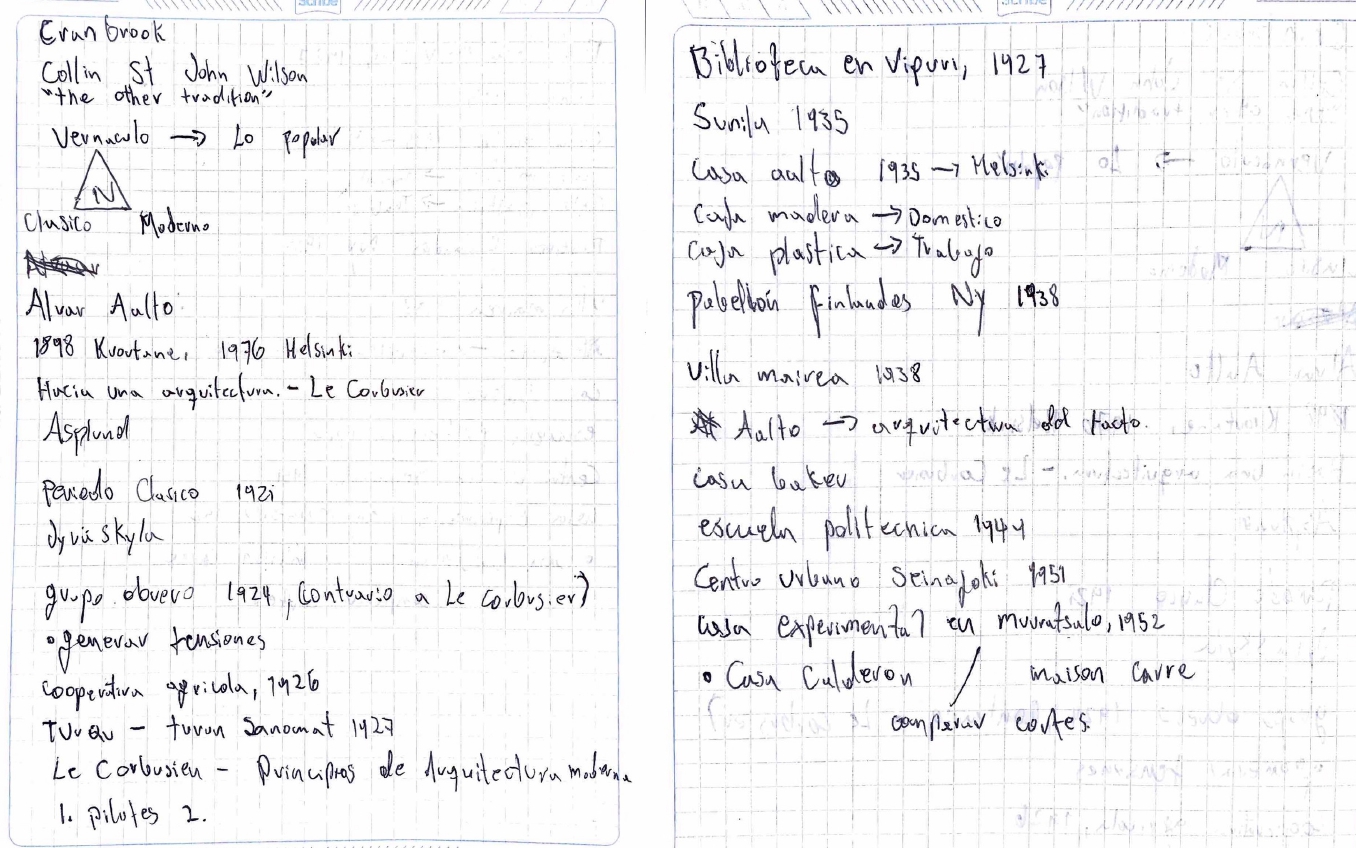 Scribe
Cranbrook
Collin St John Wilson
"the other tradition"
Vernaculo → Lo popular
N
Clasico Moderno
Alvar Aalto
1898 Kuortane, 1976 Helsinki
Hacia una arquitectura. - Le Corbusier
Asplund
Periodo Clasico 1921
Jyväskyla
grupo obrero 1924, (contrario a Le Corbusier)
• generar tensiones
cooperativa agricola, 1926
Turqu - turun Sanomat 1927
Le Corbusieu - Principios de Arquitectura moderna
1. pilotes 2.
Scribe
Biblioteca en Vipuri, 1927
Sunila 1935
Casa aalto 1935 → Helsinki
Caja madera → Domestico
Caja plastica → Trabajo
Pabellon finlandes NY 1938
Villa mairea 1938
Aalto → arquitectura del tacto.
Casa baker
escuela politecnica 1944
Centro urbano Seinajoki 1951
Casa experimental en muuratsalo, 1952
• Casa Calderon / maison Carre
comparar cortes